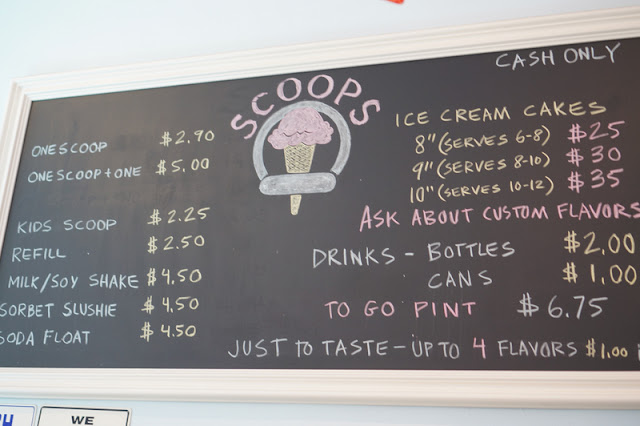 CASH ONLY
SCOOPS
ONE SCOOP $2.90
ONE SCOOP + ONE $5.00
KIDS SCOOP $2.25
REFILL $2.50
MILK/SOY SHAKE $4.50
SORBET SLUSHIE $4.50
SODA FLOAT $4.50
ICE CREAM CAKES
8" (SERVES 6-8) $25
9" (SERVES 8-10) $30
10" (SERVES 10-12) $35
ASK ABOUT CUSTOM FLAVORS
DRINKS - BOTTLES $2.00
CANS $1.00
TO GO PINT $6.75
JUST TO TASTE - UP TO 4 FLAVORS $1.00
WE